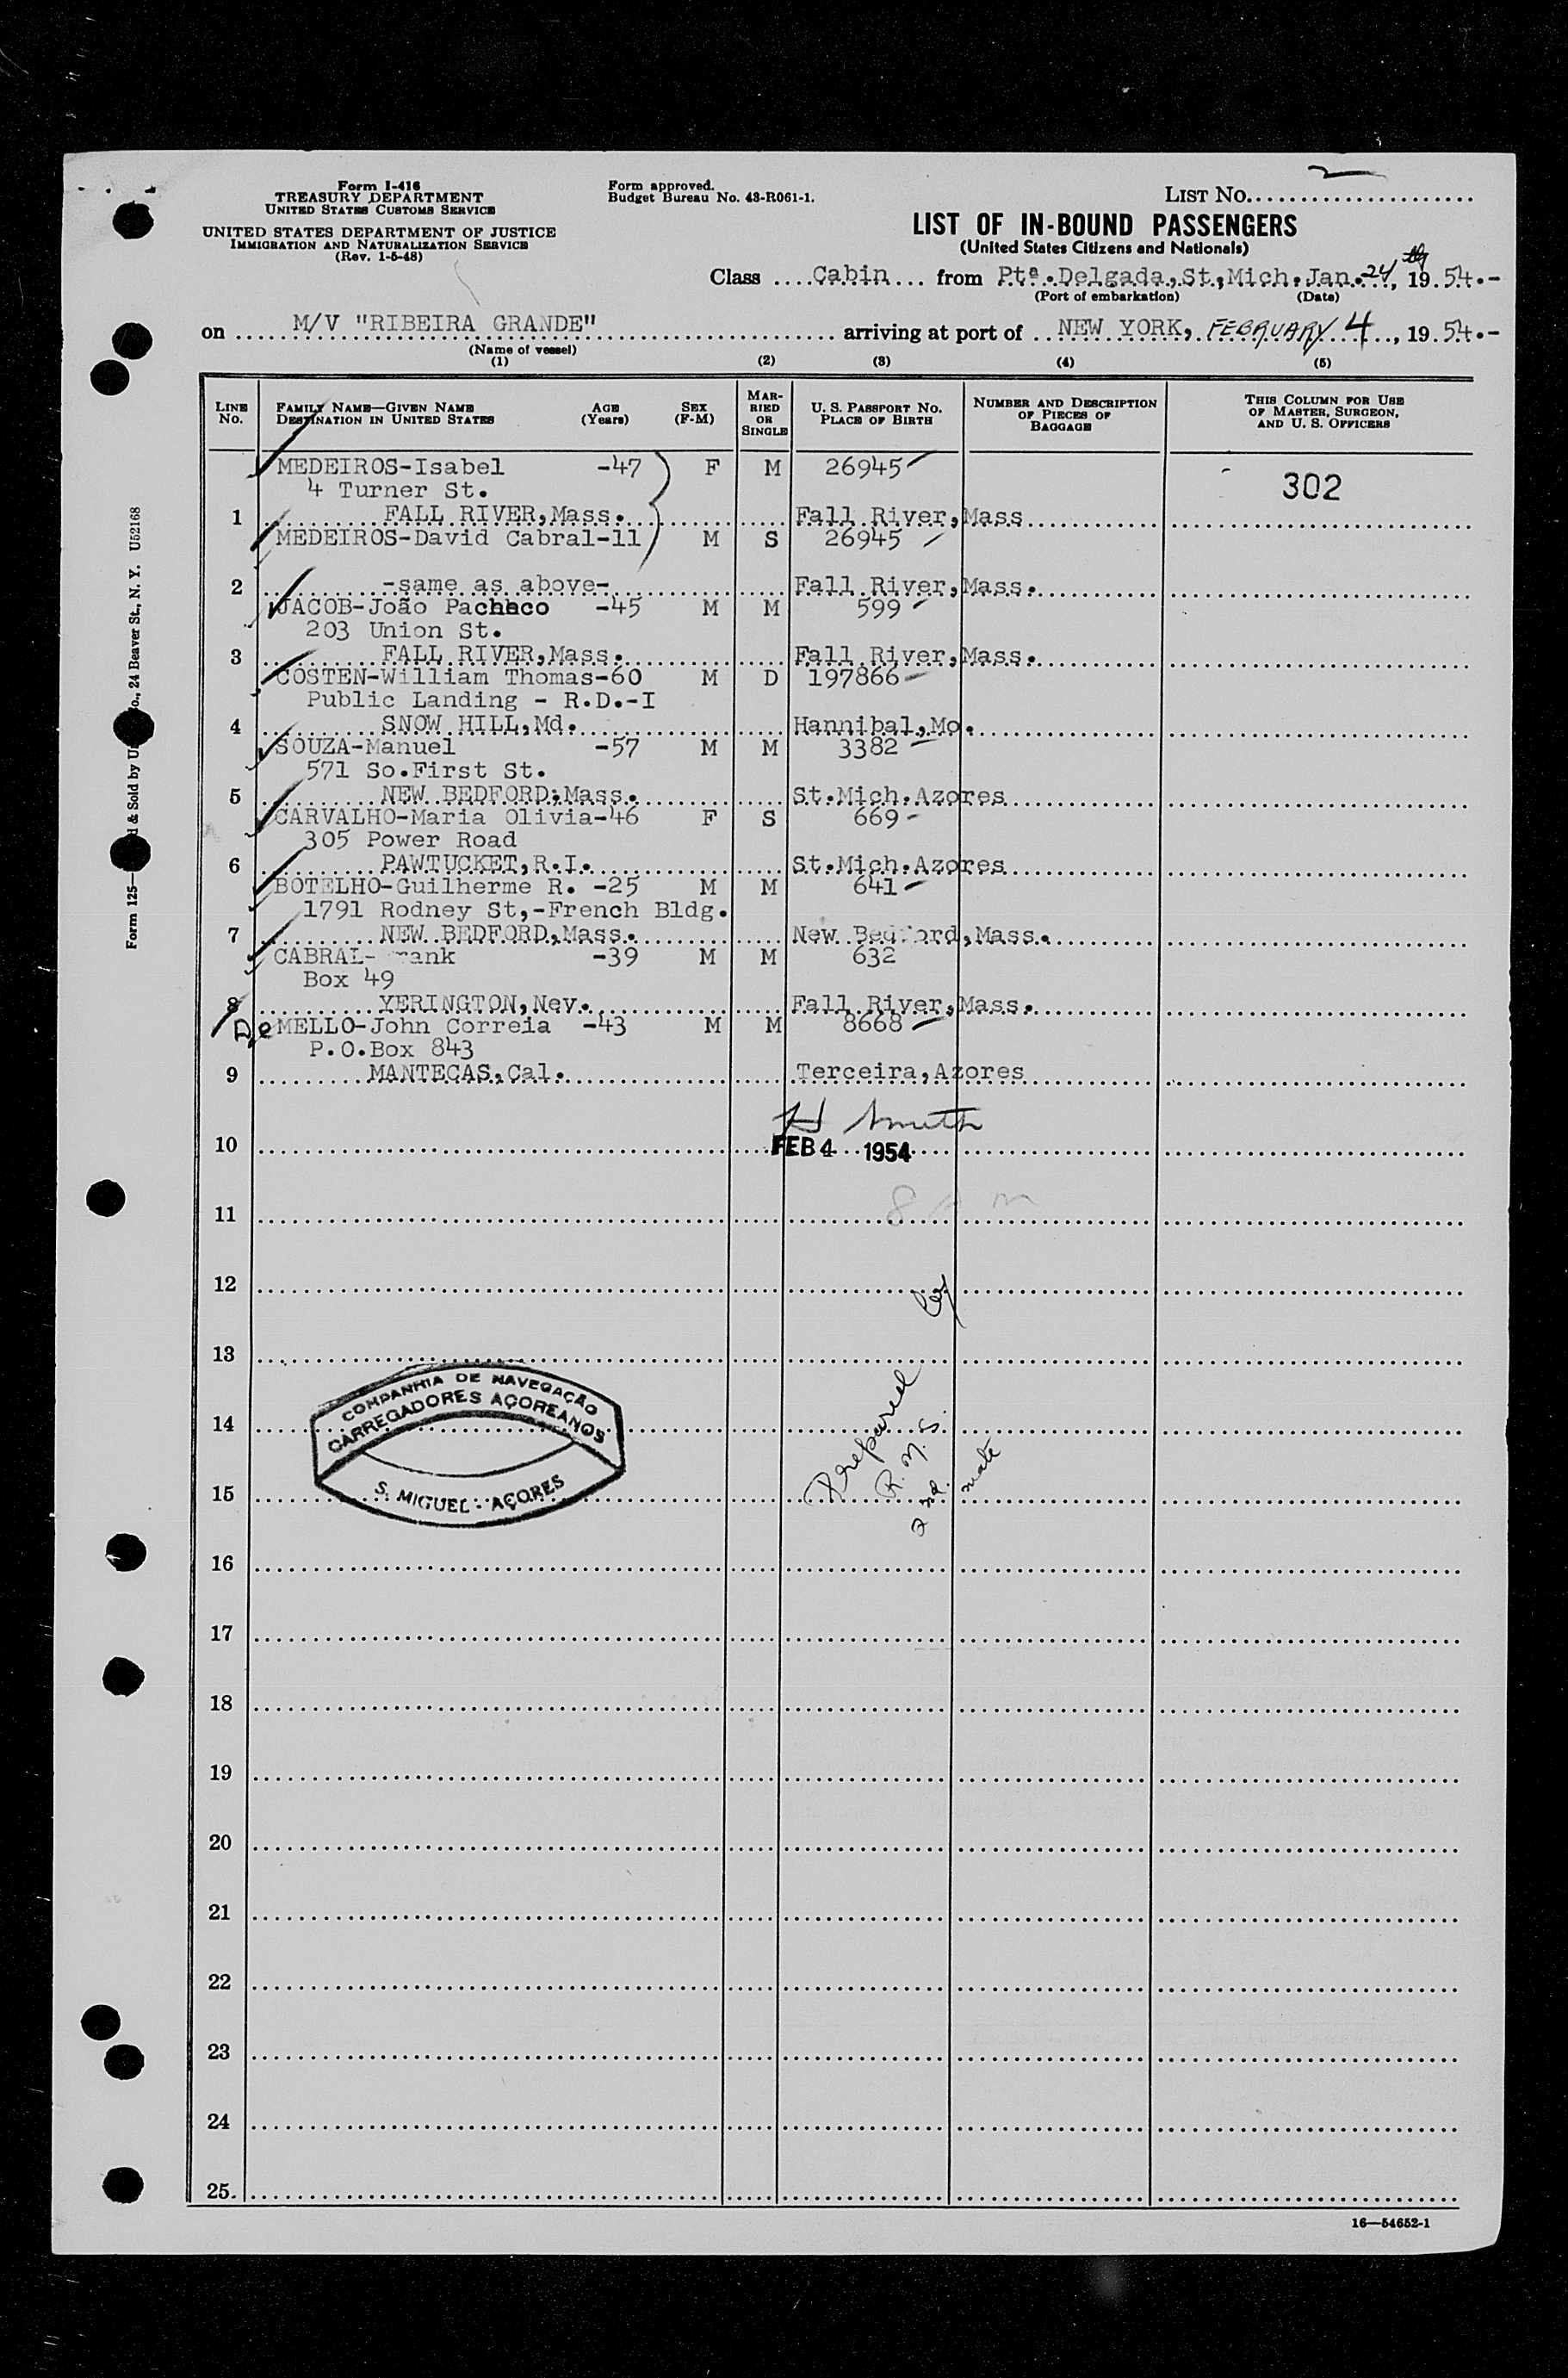 Form I-416
TREASURY DEPARTMENT
UNITED STATES CUSTOMS SERVICE
UNITED STATES DEPARTMENT OF JUSTICE
IMMIGRATION AND NATURALIZATION SERVICE
(Rev. 1-5-48)
Form approved.
Budget Bureau No. 43-R061-1.
LIST No. 2
LIST OF IN-BOUND PASSENGERS
(United States Citizens and Nationals)
Class Cabin from Ptª.Delgada,St.Mich.Jan.24th, 1954.-
(Port of embarkation) (Date)
on M/V "RIBEIRA GRANDE" arriving at port of NEW YORK, FEBRUARY 4, 1954.-
(Name of vessel)
(1) (2) (3) (4) (5)
LINE No. FAMILY NAME—GIVEN NAME DESTINATION IN UNITED STATES AGE (Years) SEX (F-M) MARRIED OR SINGLE U. S. PASSPORT No. PLACE OF BIRTH NUMBER AND DESCRIPTION OF PIECES OF BAGGAGE THIS COLUMN FOR USE OF MASTER, SURGEON, AND U. S. OFFICERS
MEDEIROS-Isabel -47 F M 26945
302
4 Turner St.
1 FALL RIVER,Mass. Fall River,Mass
MEDEIROS-David Cabral-11 M S 26945
2 -same as above- Fall River,Mass.
JACOB-João Pacheco -45 M M 599
203 Union St.
3 FALL RIVER,Mass. Fall River,Mass.
COSTEN-William Thomas-60 M D 197866
Public Landing - R.D.-I
4 SNOW HILL,Md. Hannibal,Mo.
SOUZA-Manuel -57 M M 3382
571 So.First St.
5 NEW BEDFORD,Mass. St.Mich.Azores
CARVALHO-Maria Olivia-46 F S 669
305 Power Road
6 PAWTUCKET,R.I. St.Mich.Azores
BOTELHO-Guilherme R. -25 M M 641
1791 Rodney St,-French Bldg.
7 NEW BEDFORD,Mass. New Bedford,Mass.
CABRAL-Frank -39 M M 632
Box 49
8 YERINGTON,Nev. Fall River,Mass.
De MELLO-John Correia -43 M M 8668
P.O.Box 843
9 MANTECAS,Cal. Terceira,Azores
H Smith
10 FEB 4 1954
11
12
13
COMPANHIA DE NAVEGAÇÃO
CARREGADORES AÇOREANOS
14
S. MIGUEL - AÇORES
15
Prepared by
R.M.S.
2nd. mate
16
17
18
19
20
21
22
23
24
25
16—54652-1
Form 125— & Sold by 24 Beaver St., N. Y. U52168